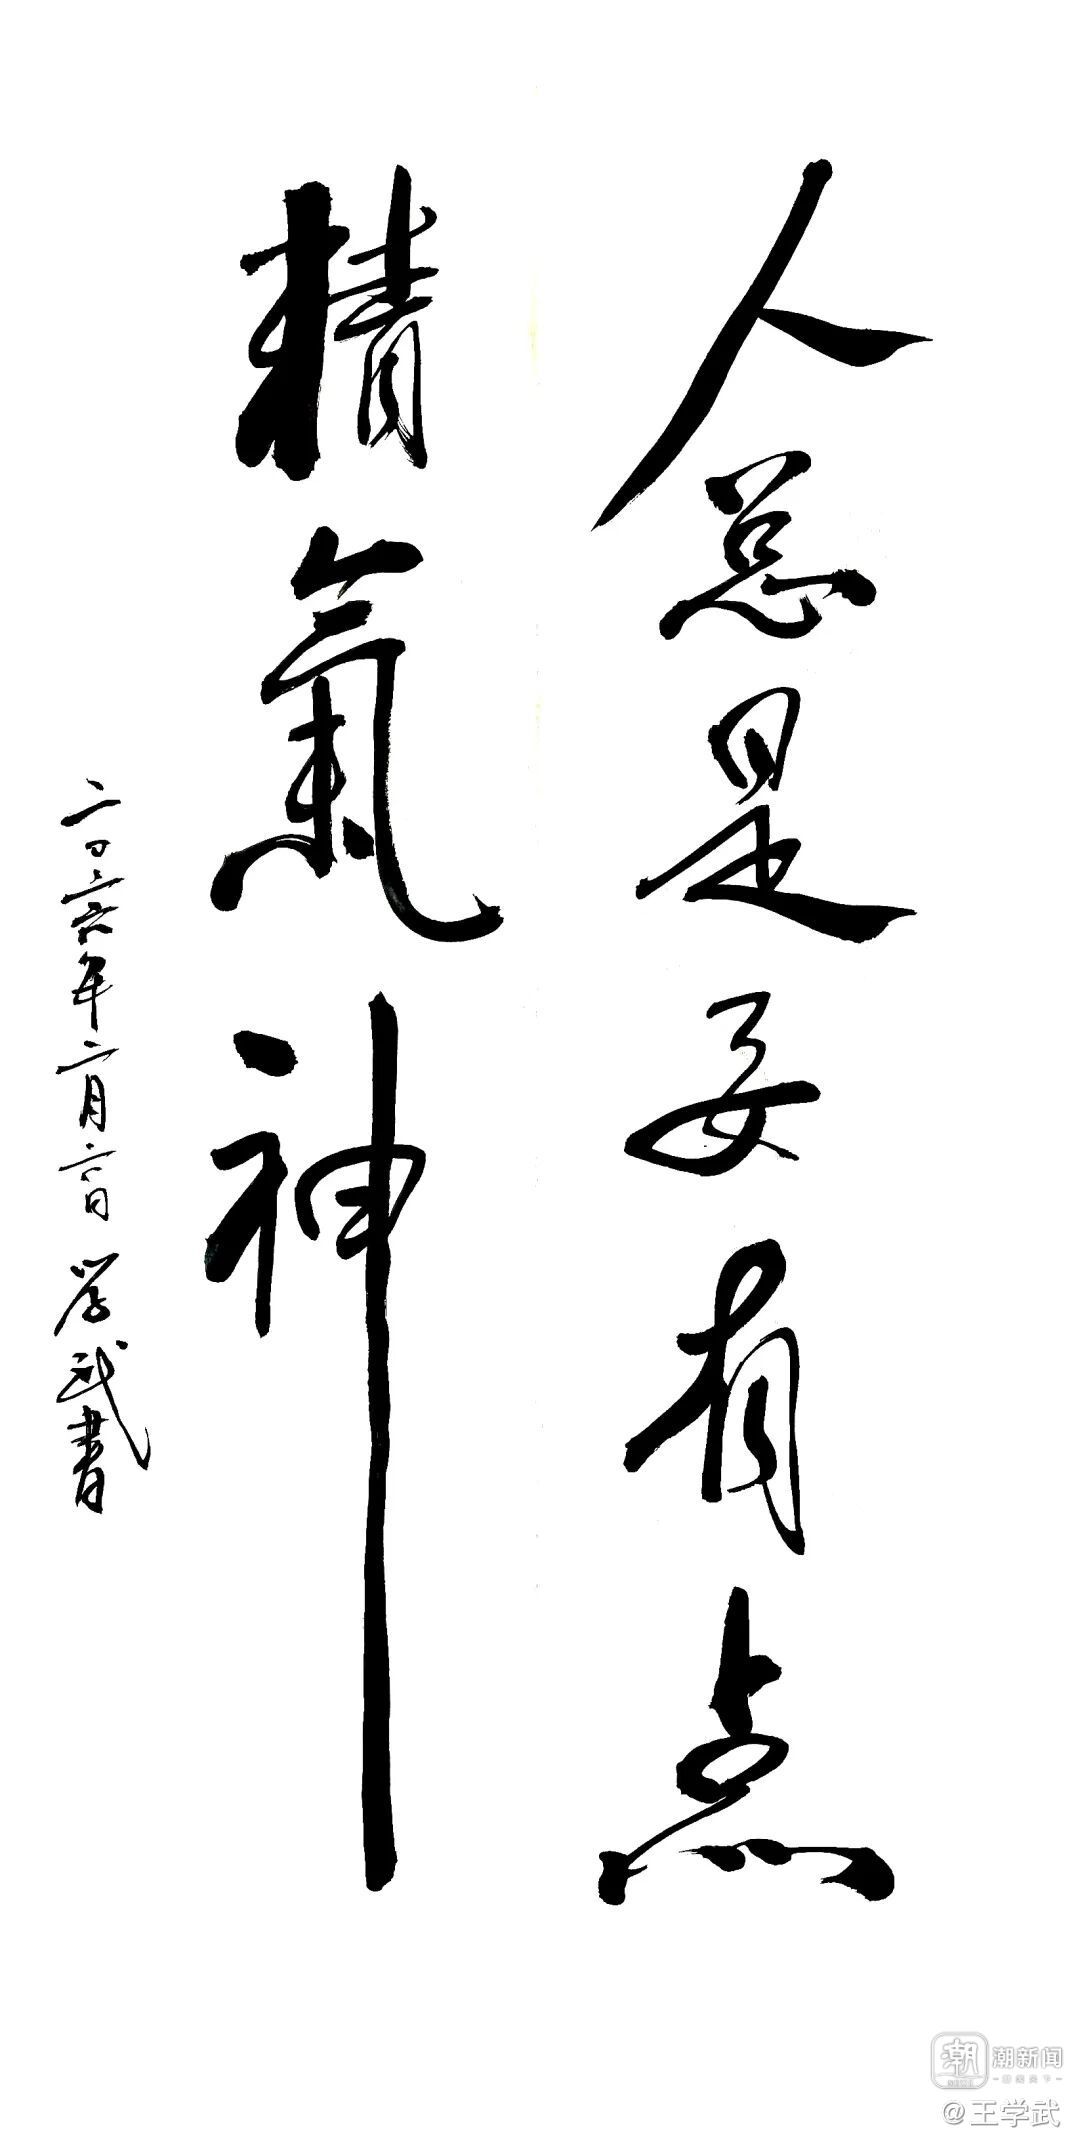 人总是要有点
精氣神
二〇二六年二月六日 学武書
潮
NEWS
潮新闻
@王学武